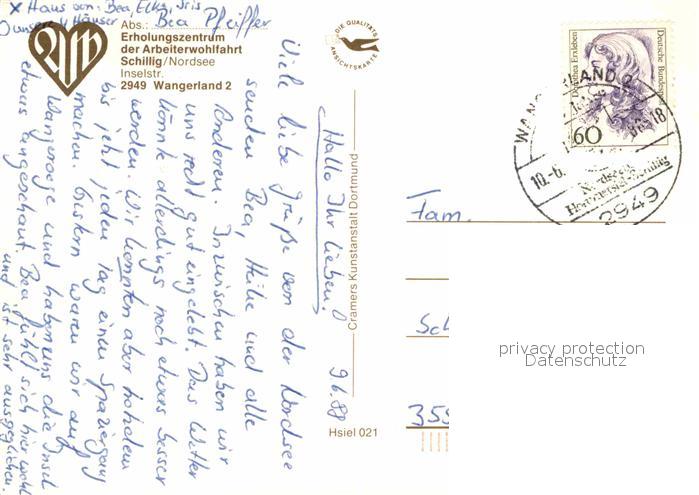 x Haus von: Bea, Elke, Iris
Abs.: Bea Pfeiffer
unsere Häuser
Erholungszentrum
der Arbeiterwohlfahrt
Schillig/Nordsee
Inselstr.
2949 Wangerland 2
DIE QUALITÄTS
ANSICHTSKARTE
Hallo Ihr Lieben!
9.6.88
Viele liebe Grüße von der Nordsee
senden Bea, Heike und alle
Anderen. Inzwischen haben wir
uns recht gut eingelebt. Das Wetter
könnte allerdings noch etwas besser
werden. Wir konnten aber trotzdem
bis jetzt jeden Tag einen Spaziergang
machen. Gestern waren wir auf
Wangerooge und haben uns die Insel
etwas angeschaut. Bea fühlt sich hier wohl
und ist sehr ausgeglichen.
Cramers Kunstanstalt Dortmund
Hsiel 021
Dorothea Erxleben
Deutsche Bundespost
60
WANGERLAND 2
10.-6.
18
Nordsee
2949
Fam.
Sch
355
privacy protection
Datenschutz